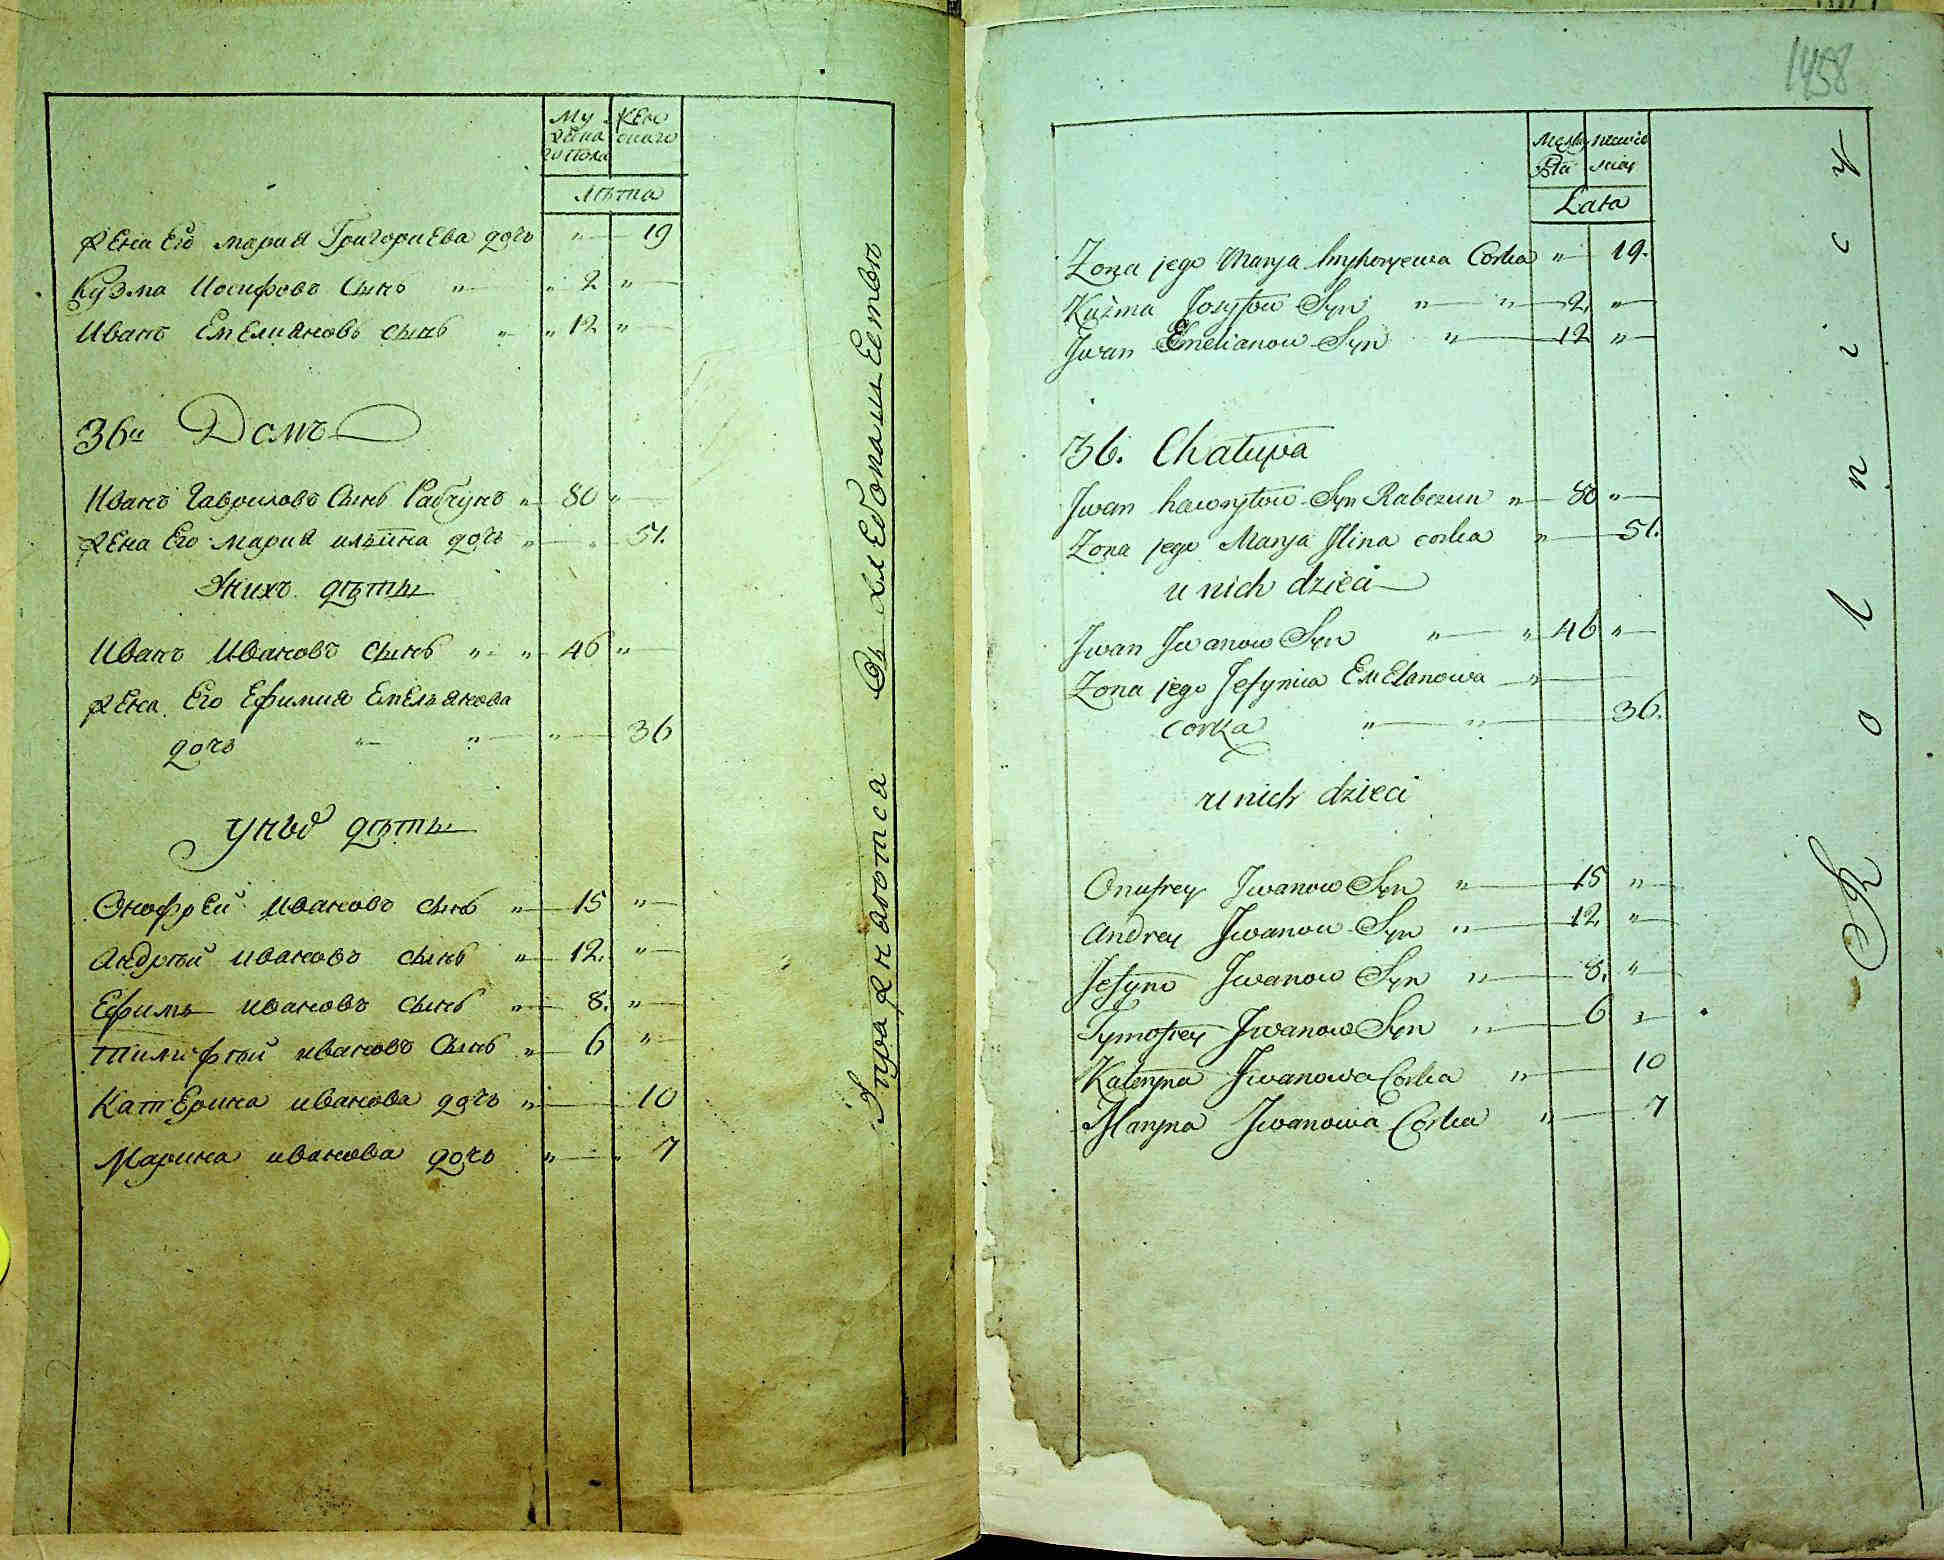 Му жеска го пола
Жен скаго
Лѣта
Жена Его Мария Григориева дочь " — 19
Кузма Иосифовъ Сынъ " " 2 " —
Иванъ Емелиановъ сынъ " " 12 " —
36й Домъ
Иванъ Гавриловъ Сынъ Рабчунъ " — 80 " —
Жена Его Мария ильина дочь " — " 51.
Унихъ дѣти
Иванъ Ивановъ сынъ " " — 46 " —
Жена Его Ефимия Емельянова
дочь " " " — 36
унихъ дѣти
Онофрей Ивановъ сынъ " — 15 " —
Андрѣй ивановъ сынъ " — 12. " —
Ефимъ ивановъ сынъ " — 8. " —
Тимофѣй ивановъ Сынъ " — 6 "
КатЕрина иванова дочь " — 10
Марина иванова дочь " — " 7
Упражняются Въ хлебопашествѣ
1458
Męzka Płci
niewieścia
Lata
Zona jego Marya Hryhoryewa Corka " — 19.
Kuźma Josyfow Syn " — " — 2. " —
Jwan Emelianow Syn " — 12 " —
36. Chałupa
Jwan hawryłow Syn Rabczun " — 80 " —
Zona jego Marya Jlina corka " — 51.
u nich dzieci
Jwan Jwanow Syn " — " 46 " —
Zona jego Jefymia Emelanowa " —
corka " — " — 36.
u nich dzieci
Onufrey Jwanow Syn " — 15 " —
Andrey Jwanow Syn " — 12. " —
Jefym Jwanow Syn " — 8. " —
Tymofiey Jwanow Syn " — 6 " —
Kateryna Jwanowa Corka " — 10
Maryna Jwanowa Corka " — 7
Rolnicy